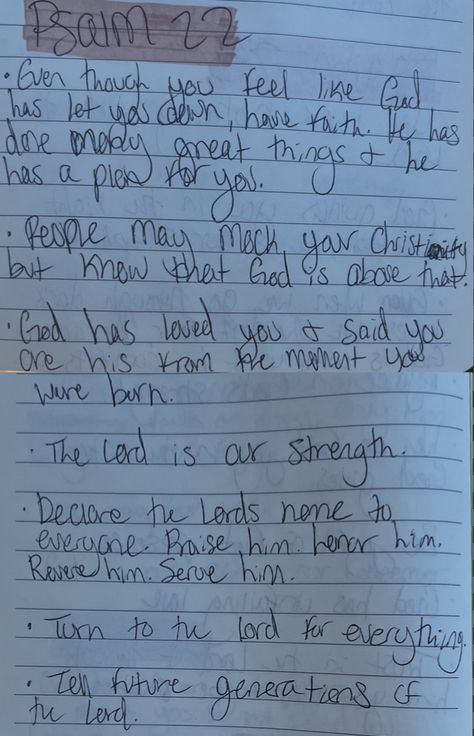 Psalm 22
· Even though you feel like God
has let you down, have faith. He has
done many great things & he
has a plan for you.
· People may mock your Christianity
but know that God is above that.
· God has loved you & said you
are his from the moment you
were born.
· The Lord is our strength.
· Declare the Lords name to
everyone. Praise him. honor him.
Revere him. Serve him.
· Turn to the Lord for everything.
· Tell future generations of
the Lord.